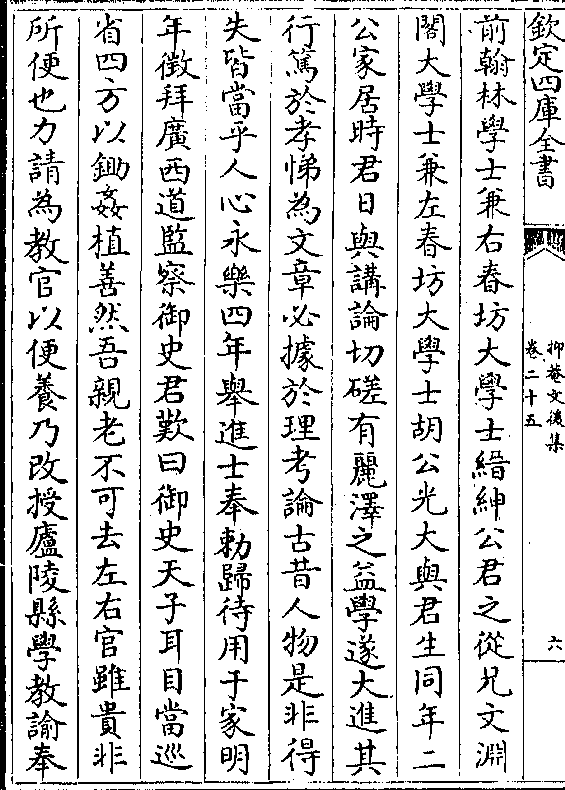 欽定四庫全書
抑菴文後集
卷二十五
六
前翰林學士兼右春坊大學士縉紳公君之從兄文淵
閣大學士兼左春坊大學士胡公光大與君生同年二
公家居時君日與講論切磋有麗澤之益學遂大進其
行篤於孝悌為文章必據於理考論古昔人物是非得
失皆當乎人心永樂四年舉進士奉勅歸待用于家明
年徴拜廣西道監察御史君歎曰御史天子耳目當巡
省四方以鋤姦植善然吾親老不可去左右官雖貴非
所便也力請為教官以便養乃改授廬陵縣學教諭奉